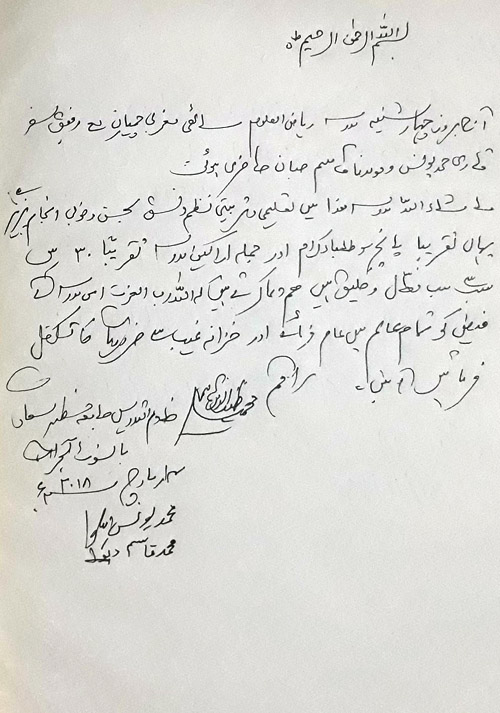 بسم اللہ الرحمن الرحیم ط
آج بروز چہار شنبہ مدرسہ ریاض العلوم ساٹھی مغربی چمپارن مع رفیق سفر
قاری محمد یونس و مولانا قاسم صاحبان حاضری ہوئی
ماشاء اللہ مدرسہ ھذا میں تعلیمی و تربیتی نظم و نسق بحسن و خوبی انجام پذیر ہے
یہاں تقریبا پانچ سو طلباء کرام اور جملہ اراکین مدرسہ تقریبًا ۳۰ ہیں
سب فعال و خلیق ہیں ہم دعا کرتے ہیں کہ اللہ رب العزت اس مدرسہ کے
فیض کو تمام عالم میں عام فرمائے اور خزانہ غیب سے ضروریات کا تکفل
فرمائیں آمین۔ راقم
محمد خادم التدریس جامعہ مظہر سعادت
ہانسوٹ گجرات
۱۴ مارچ ۲۰۱۸ء
محمد یونس
محمد قاسم